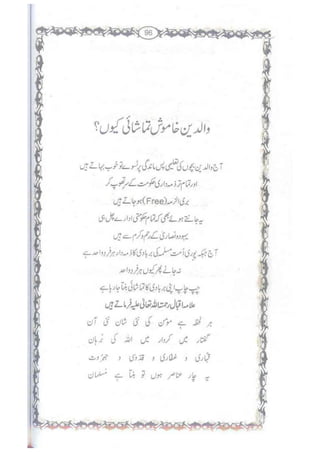 96
والدین خاموش تماشائی کیوں؟
آج والدین بچوں کی تعلیمی پس ماندگی پر ٹسوے تو خوب بہاتے ہیں
اور تمام تر ذمہ داری حکومت کے سر تھوپ کر
بری الذمہ (Free) ہو جاتے ہیں
یہ جانتے ہوئے بھی کہ تمام حکومتی ادارے چل ہی
یہود و نصاریٰ کے رحم و کرم سے ہیں
آج جبکہ پوری اُمت مسلمہ کی بربادی کا ذمہ دار ہر فرد واحد ہے
نہ جانے پھر کیوں ہر فرد واحد
چپ چاپ اپنی بربادی کا تماشائی بنتا جا رہا ہے
علامہ اقبال رحمۃ اللہ تعالیٰ علیہ فرماتے ہیں
ہر لحظہ ہے مومن کی نئی شان نئی آن
گفتار میں کردار میں اللہ کی بُرہان
قہاری و غفاری و قدوسی و جبروت
یہ چار عناصر ہوں تو بنتا ہے مُسلمان